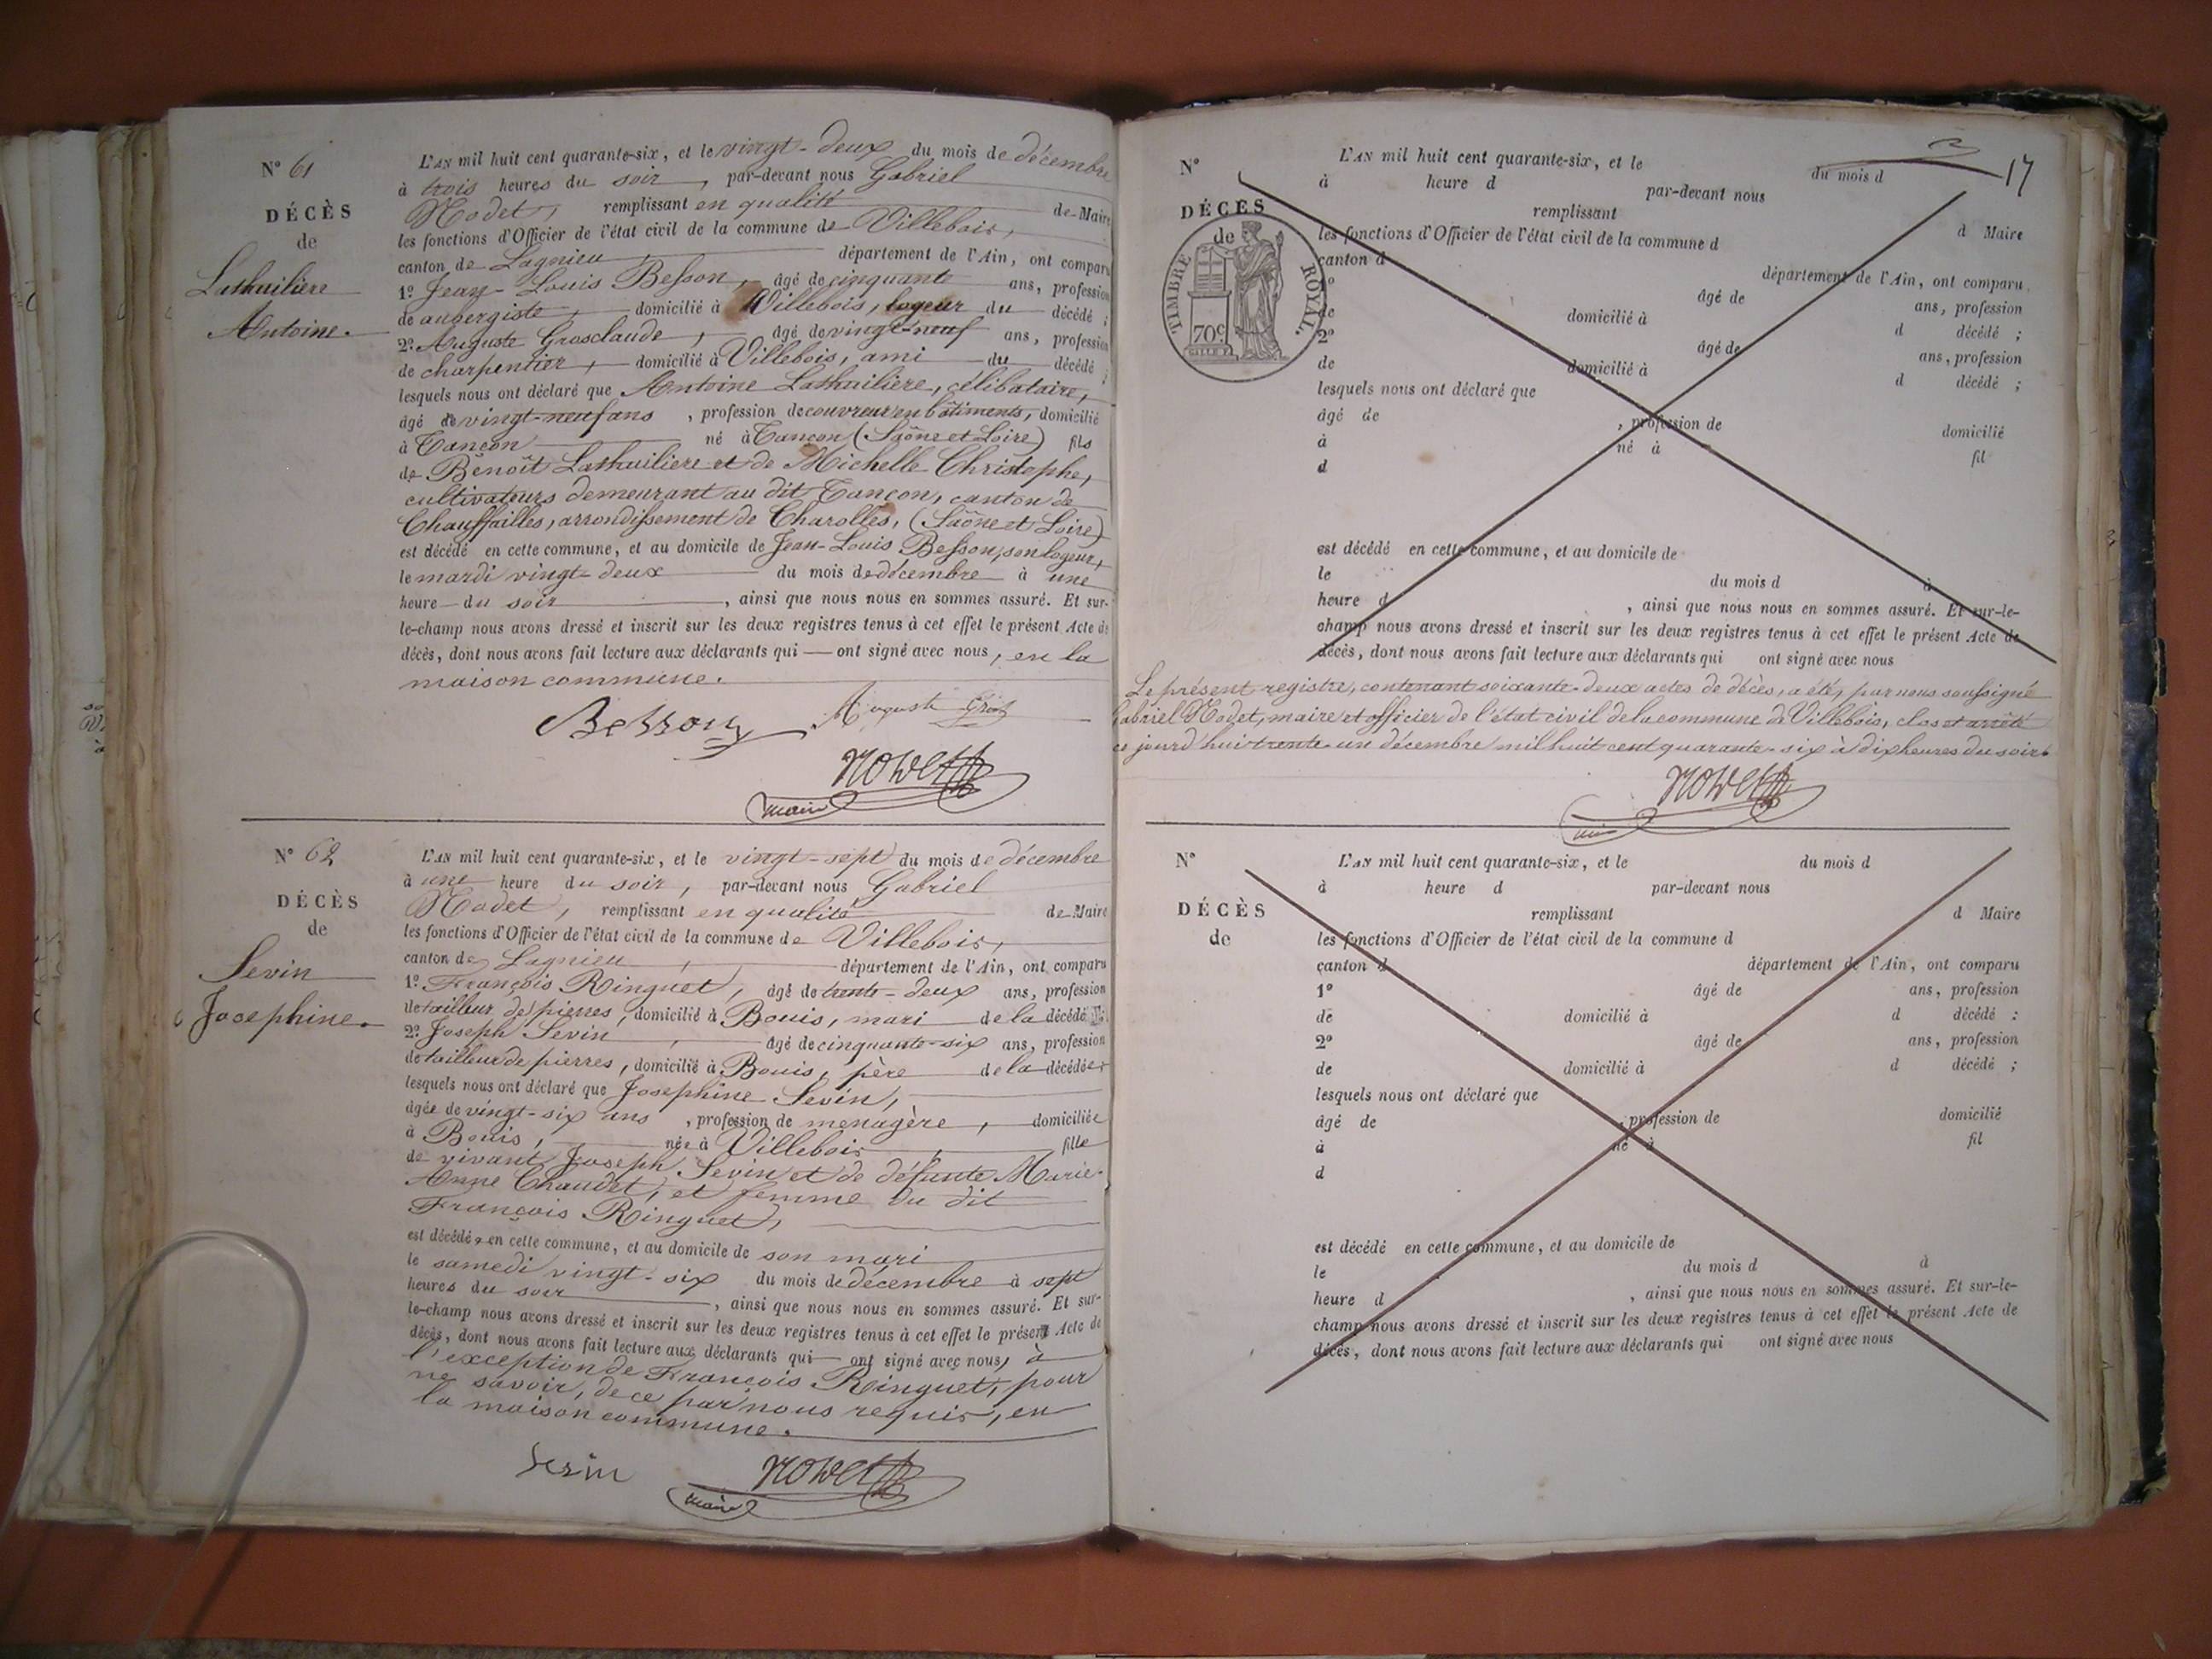 N° 61
DÉCÈS
de
Lathuilière
Antoine.
L'AN mil huit cent quarante-six, et le vingt-deux du mois de décembre
à trois heures du soir, par-devant nous Gabriel
Nodet, remplissant en qualité de Maire
les fonctions d'Officier de l'état civil de la commune de Villebois,
canton de Lagnieu, département de l'Ain, ont comparu
1° Jean-Louis Besson, âgé de cinquante ans, profession
de aubergiste, domicilié à Villebois, logeur du décédé;
2° Auguste Grosclaude, âgé de vingt-neuf ans, profession
de charpentier, domicilié à Villebois, ami du décédé;
lesquels nous ont déclaré que Antoine Lathuilière, célibataire,
âgé de vingt-neuf ans, profession de couvreur en bâtiments, domicilié
à Tancon né à Tancon (Saône et Loire) fils
de Benoît Lathuilière et de Michelle Christophe,
cultivateurs demeurant au dit Tancon, canton de
Chauffailles, arrondissement de Charolles, (Saône et Loire)
est décédé en cette commune, et au domicile de Jean-Louis Besson, son logeur,
le mardi vingt-deux du mois de décembre à une
heure du soir, ainsi que nous nous en sommes assuré. Et sur-
le-champ nous avons dressé et inscrit sur les deux registres tenus à cet effet le présent Acte de
décès, dont nous avons fait lecture aux déclarants qui ont signé avec nous, en la
maison commune.
Besson Auguste Gros
Nodet
maire
N° 62
DÉCÈS
de
Sevin
Josephine.
L'AN mil huit cent quarante-six, et le vingt-sept du mois de décembre
à une heure du soir, par-devant nous Gabriel
Nodet, remplissant en qualité de Maire
les fonctions d'Officier de l'état civil de la commune de Villebois,
canton de Lagnieu, département de l'Ain, ont comparu
1° François Ringuet, âgé de trente-deux ans, profession
de tailleur de pierres, domicilié à Bouis, mari de la décédée
2° Joseph Sevin, âgé de cinquante-six ans, profession
de tailleur de pierres, domicilié à Bouis, père de la décédée
lesquels nous ont déclaré que Josephine Sevin,
âgée de vingt-six ans, profession de menagère, domiciliée
à Bouis, née à Villebois, fille
de vivant Joseph Sevin et de défunte Marie-
Anne Chaudet, et femme du dit
François Ringuet,
est décédée en cette commune, et au domicile de son mari
le samedi vingt-six du mois de décembre à sept
heures du soir, ainsi que nous nous en sommes assuré. Et sur-
le-champ nous avons dressé et inscrit sur les deux registres tenus à cet effet le présent Acte de
décès, dont nous avons fait lecture aux déclarants qui ont signé avec nous, à
l'exception de François Ringuet, pour
ne savoir, de ce par nous requis, en
la maison commune.
Sevin Nodet
maire
17
N°
DÉCÈS
de
TIMBRE ROYAL.
70c
L'AN mil huit cent quarante-six, et le du mois d
à heure d par-devant nous
remplissant d Maire
les fonctions d'Officier de l'état civil de la commune d
canton d département de l'Ain, ont comparu
1° âgé de ans, profession
de domicilié à d décédé;
2° âgé de ans, profession
de domicilié à d décédé;
lesquels nous ont déclaré que
âgé de , profession de domicilié
à né à fil
d
est décédé en cette commune, et au domicile de
le du mois d à
heure d , ainsi que nous nous en sommes assuré. Et sur-le-
champ nous avons dressé et inscrit sur les deux registres tenus à cet effet le présent Acte de
décès, dont nous avons fait lecture aux déclarants qui ont signé avec nous
Le présent registre, contenant soixante-deux actes de décès, a été, par nous soussigné
Gabriel Nodet, maire et officier de l'état civil de la commune de Villebois, clos et arrêté
ce jourd'hui trente-un décembre mil huit cent quarante-six à dix heures du soir.
Nodet
N°
DÉCÈS
de
L'AN mil huit cent quarante-six, et le du mois d
à heure d par-devant nous
remplissant d Maire
les fonctions d'Officier de l'état civil de la commune d
canton d département de l'Ain, ont comparu
1° âgé de ans, profession
de domicilié à d décédé:
2° âgé de ans, profession
de domicilié à d décédé;
lesquels nous ont déclaré que
âgé de , profession de domicilié
à né à fil
d
est décédé en cette commune, et au domicile de
le du mois d à
heure d , ainsi que nous nous en sommes assuré. Et sur-le-
champ nous avons dressé et inscrit sur les deux registres tenus à cet effet le présent Acte de
décès, dont nous avons fait lecture aux déclarants qui ont signé avec nous